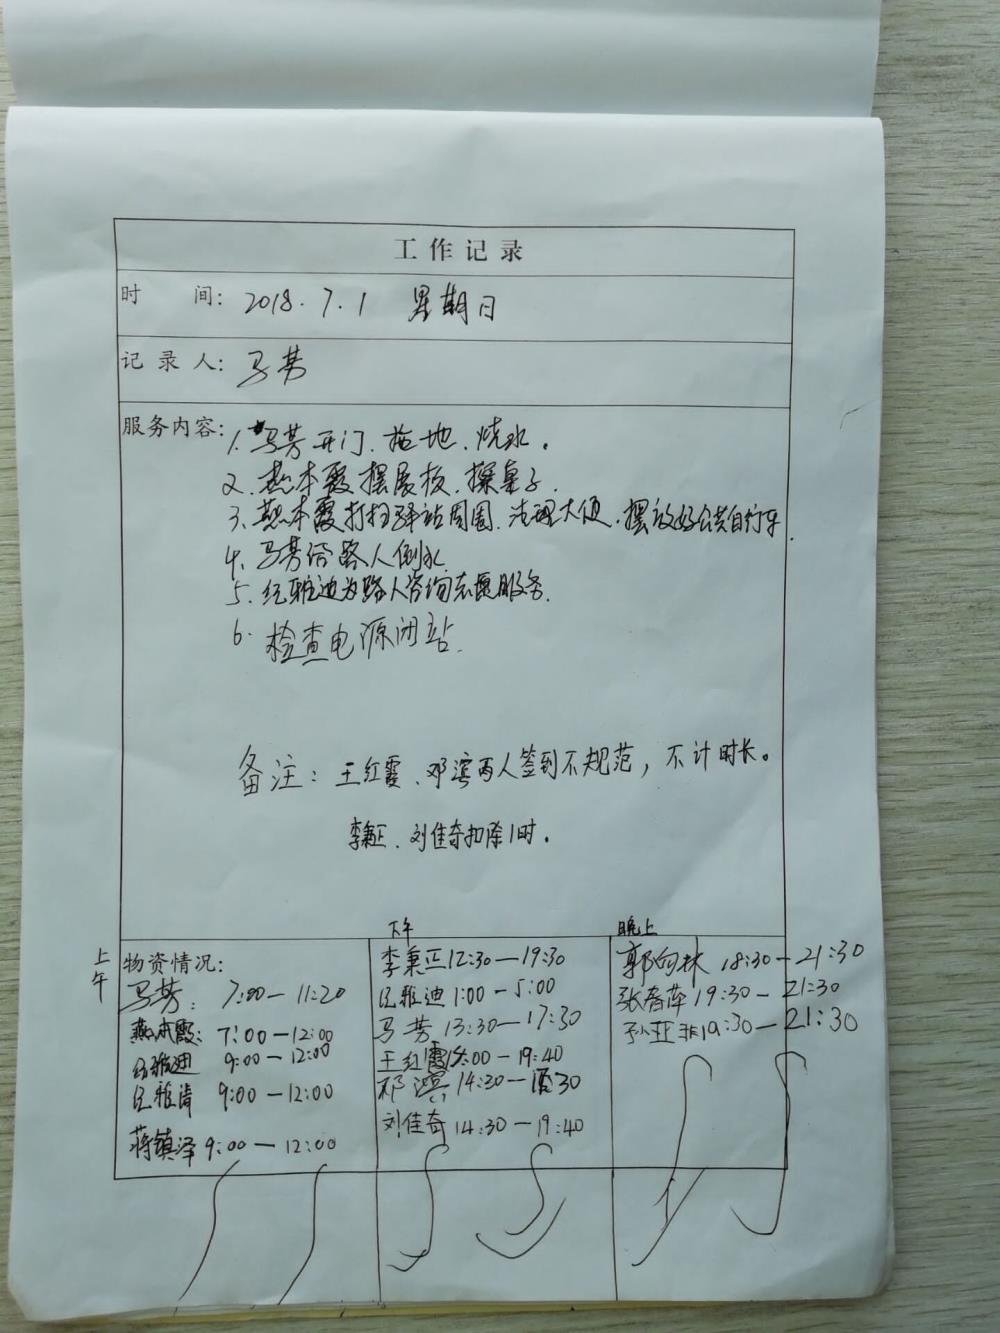 工作记录
时 间: 2018.7.1 星期日
记录人: 马芳
服务内容: 1. 马芳开门、拖地、烧水。
2. 燕本霞摆展板、擦桌子.
3. 燕本霞打扫驿站周围、清理大便、摆放好公共自行车.
4. 马芳给路人倒水
5. 纪雅迪为路人咨询志愿服务.
6. 检查电源闭站.
备注: 王红霞、邓滨两人签到不规范, 不计时长。
李秉正、刘佳奇扣除1时。
上午
物资情况:
马芳: 7:00—11:20
燕本霞: 7:00—12:00
纪雅迪 9:00—12:00
纪雅肯 9:00—12:00
蒋镇泽 9:00—12:00
下午
李秉正 12:30—19:30
纪雅迪 1:00—5:00
马芳 13:30—17:30
王红霞 15:00—19:40
邓滨 14:30—30
刘佳奇 14:30—19:40
晚上
郭向林 18:30—21:30
张春萍 19:30—21:30
孙亚非 19:30—21:30